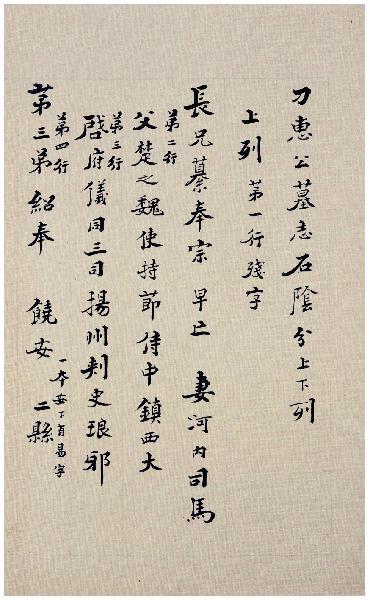 刀惠公墓志石陰分上下列
上列 第一行殘字
長兄纂奉宗 早亡 妻河內司馬
第二行
父楚之魏使持節侍中鎮西大
第三行
啓府儀同三司揚州刾史琅邪
第四行
第三弟紹奉 饒安 一本安下有易字 二縣